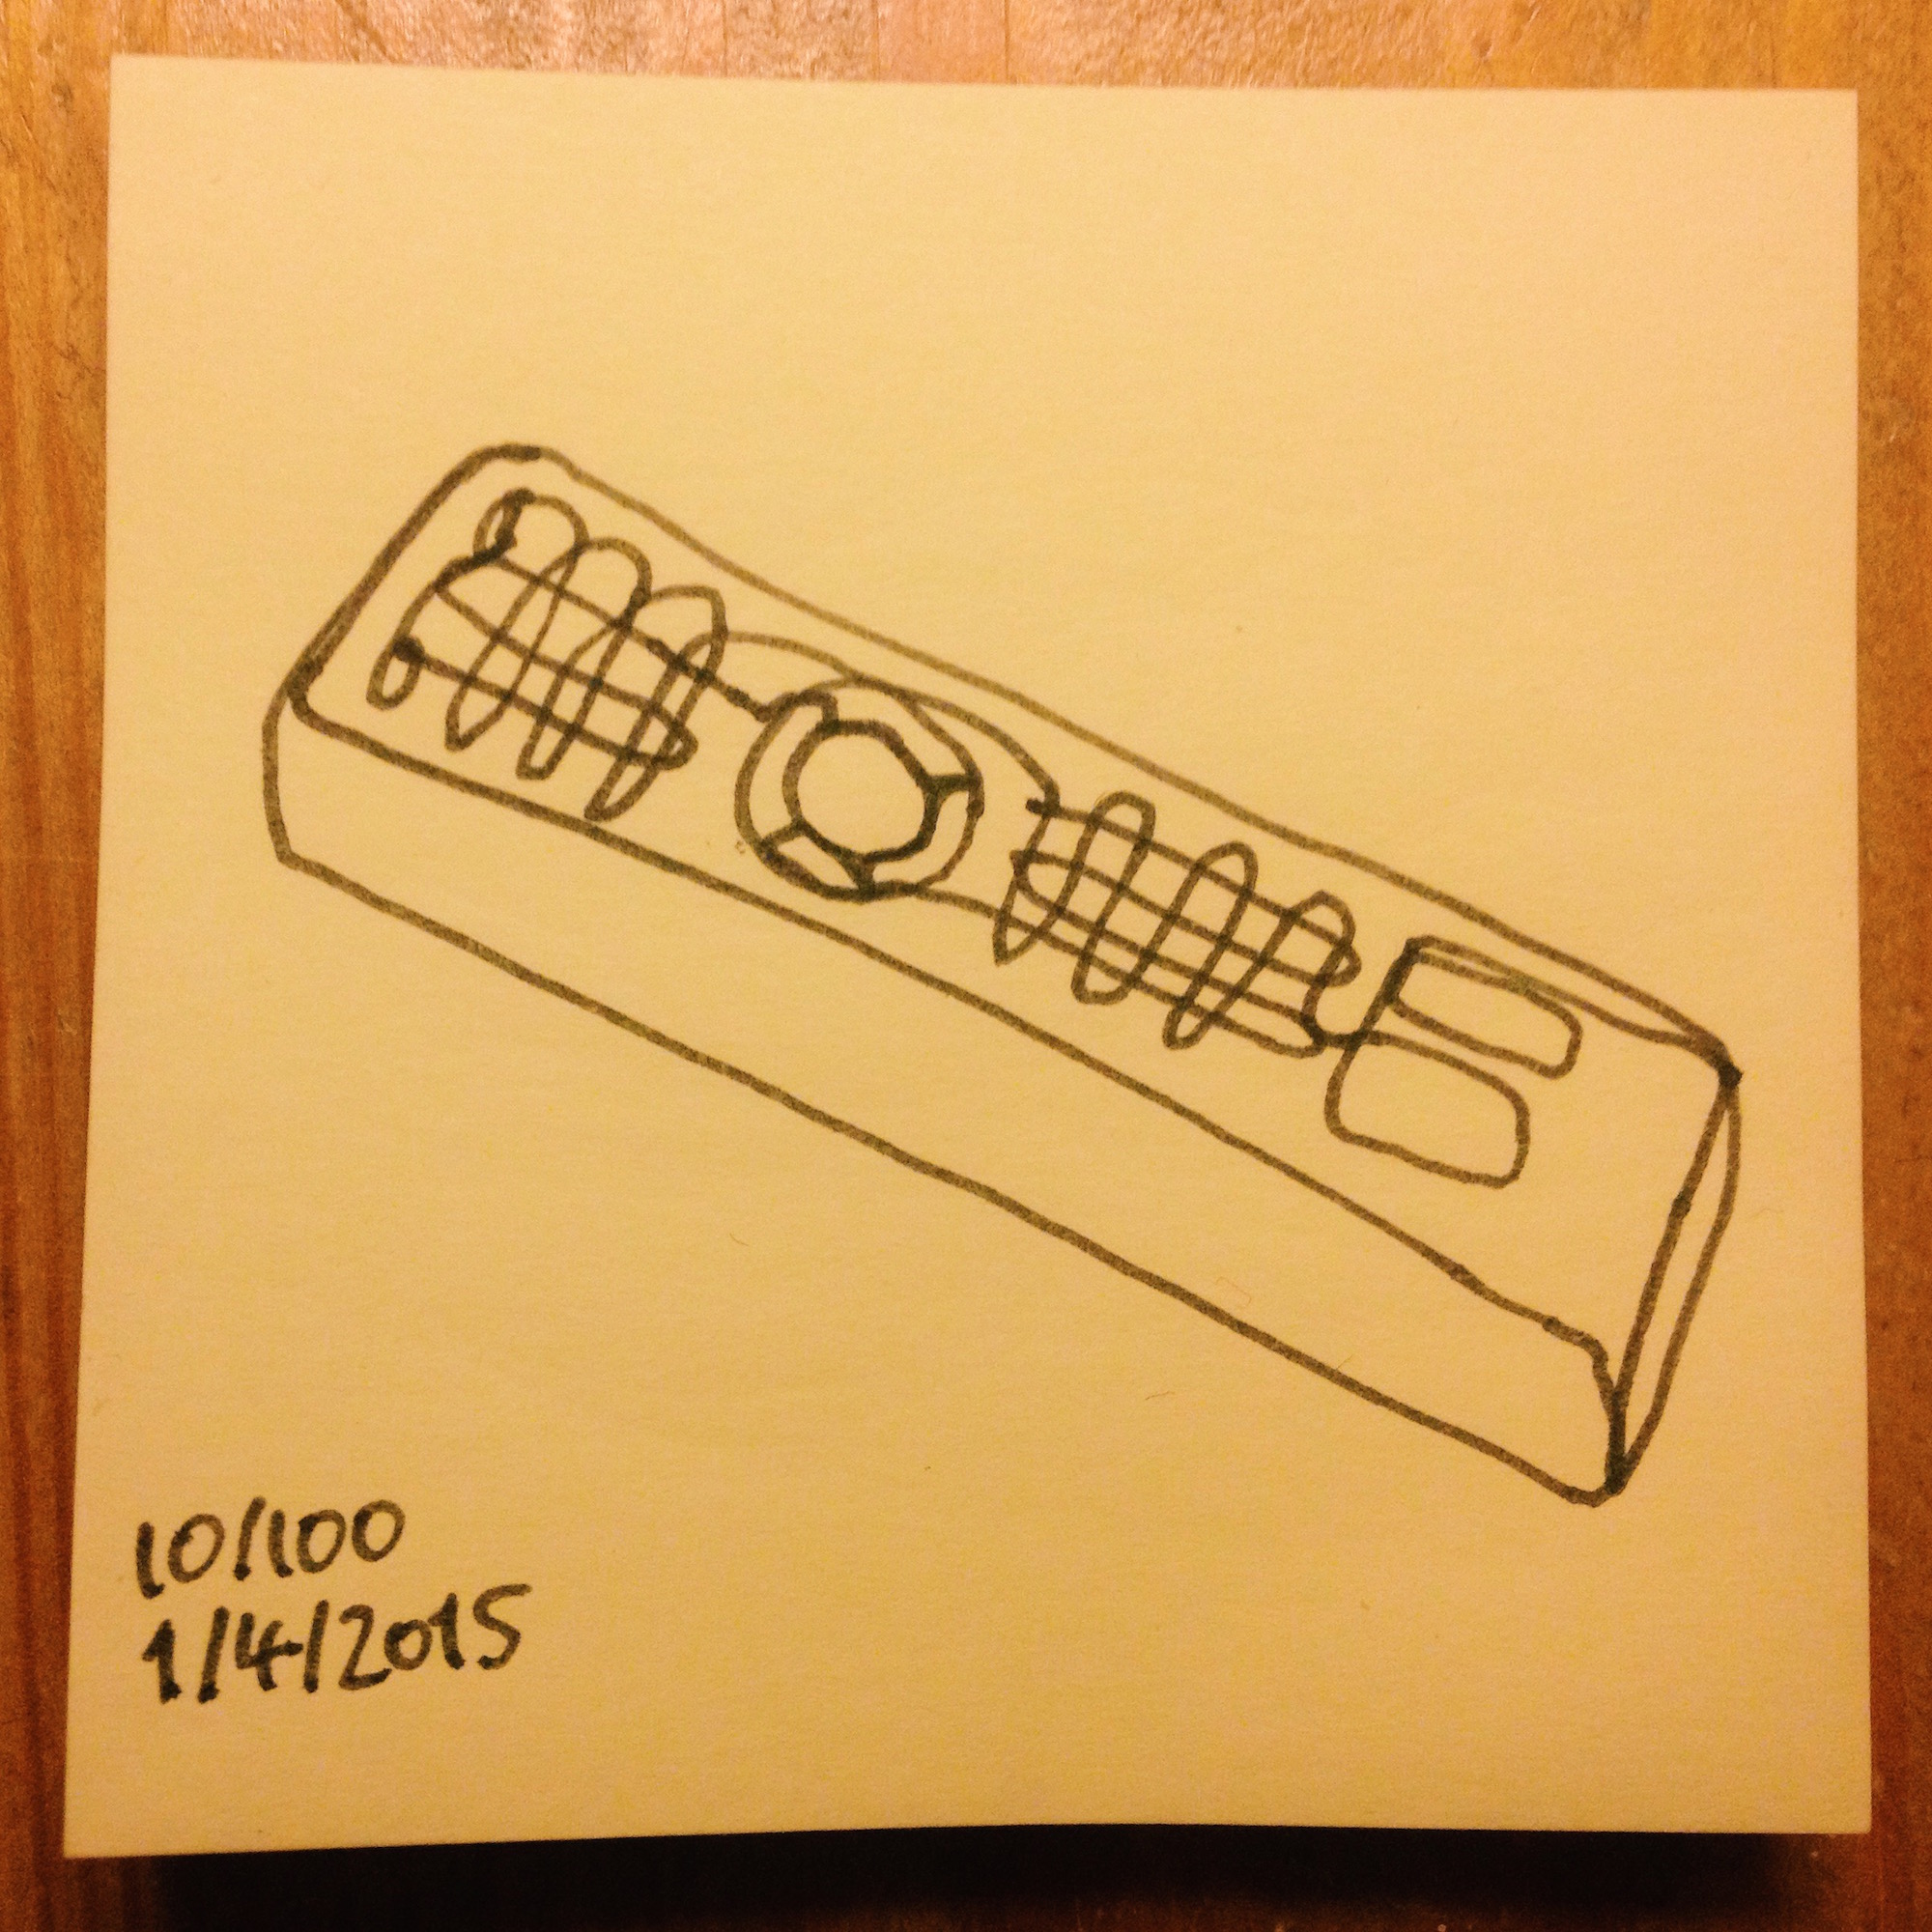 10/100
1/4/2015